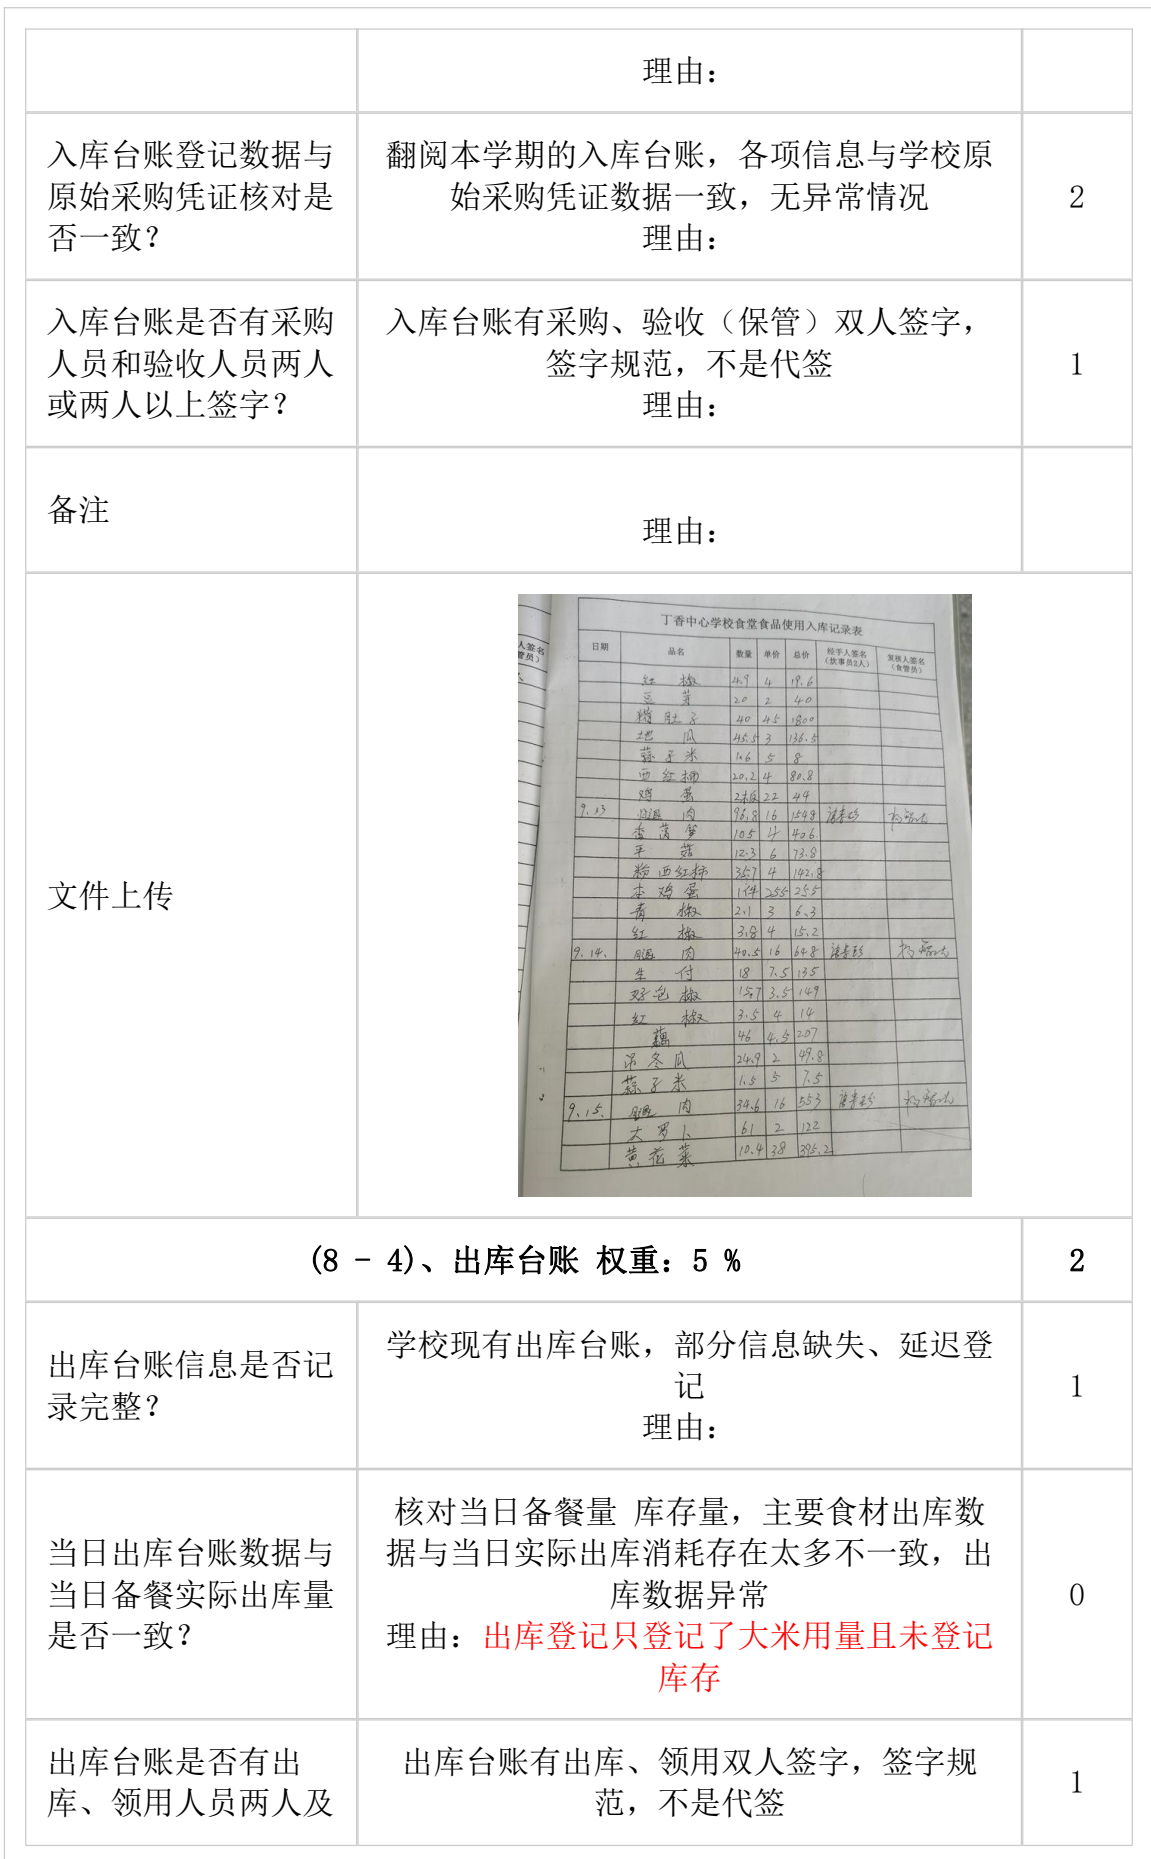 理由：
入库台账登记数据与
原始采购凭证核对是
否一致？
翻阅本学期的入库台账，各项信息与学校原
始采购凭证数据一致，无异常情况
理由：
2
入库台账是否有采购
人员和验收人员两人
或两人以上签字？
入库台账有采购、验收（保管）双人签字，
签字规范，不是代签
理由：
1
备注
理由：
文件上传
丁香中心学校食堂食品使用入库记录表
日期 品名 数量 单价 总价 经手人签名（炊事员2人） 复核人签名（食管员）
红椒 4.9 4 19.6
豆芽 20 2 40
猪肚子 40 45 1800
地瓜 45.5 3 136.5
蒜子米 1.6 5 8
西红柿 20.2 4 80.8
鸡蛋 2板 22 44
9.13 腿肉 96.8 16 1548
香莴笋 105 4 406
平菇 12.3 6 73.8
粉西红柿 35.7 4 142.8
本鸡蛋 1件 255 255
青椒 2.1 3 6.3
红椒 3.8 4 15.2
9.14. 腿肉 40.5 16 648
生付 18 7.5 135
红椒 3.5 4 14
藕 46 4.5 207
冬瓜 24.9 2 49.8
蒜子米 1.5 5 7.5
9.15. 腿肉 34.6 16 553
大罗卜 61 2 122
黄花菜 10.4 38 395.2
(8 - 4)、出库台账 权重：5 %
2
出库台账信息是否记
录完整？
学校现有出库台账，部分信息缺失、延迟登
记
理由：
1
当日出库台账数据与
当日备餐实际出库量
是否一致？
核对当日备餐量 库存量，主要食材出库数
据与当日实际出库消耗存在太多不一致，出
库数据异常
理由：出库登记只登记了大米用量且未登记
库存
0
出库台账是否有出
库、领用人员两人及
出库台账有出库、领用双人签字，签字规
范，不是代签
1